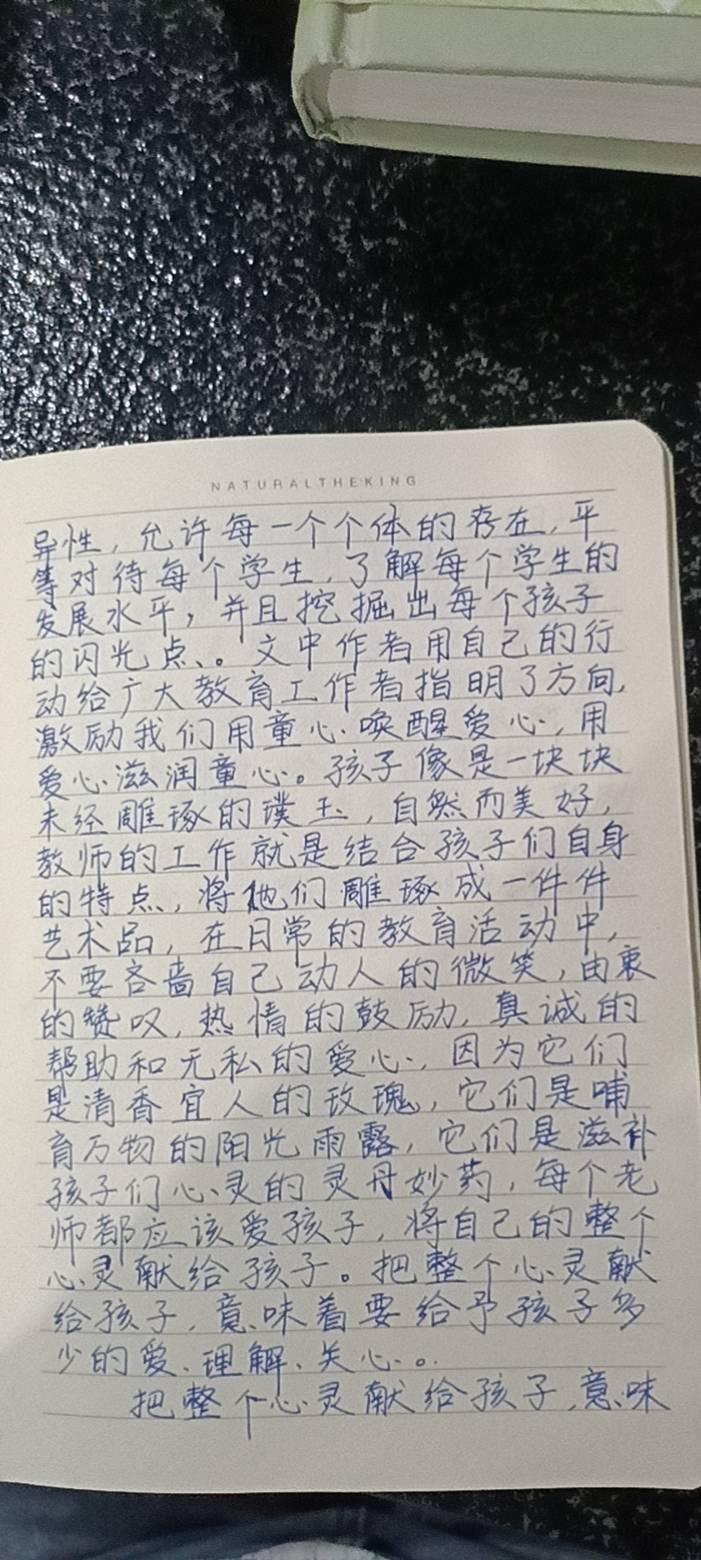 NATURALTHEKING
异性，允许每一个个体的存在，平
等对待每个学生，了解每个学生的
发展水平，并且挖掘出每个孩子
的闪光点、。文中作者用自己的行
动给广大教育工作者指明了方向，
激励我们用童心唤醒爱心，用
爱心滋润童心。孩子像是一块块
未经雕琢的璞玉，自然而美好，
教师的工作就是结合孩子们自身
的特点，将他们雕琢成一件件
艺术品，在日常的教育活动中，
不要吝啬自己动人的微笑，由衷
的赞叹，热情的鼓励，真诚的
帮助和无私的爱心，因为它们
是清香宜人的玫瑰，它们是哺
育万物的阳光雨露，它们是滋补
孩子们心灵的灵丹妙药，每个老
师都应该爱孩子，将自己的整个
心灵献给孩子。把整个心灵献
给孩子，意味着要给予孩子多
少的爱、理解、关心。
把整个心灵献给孩子，意味